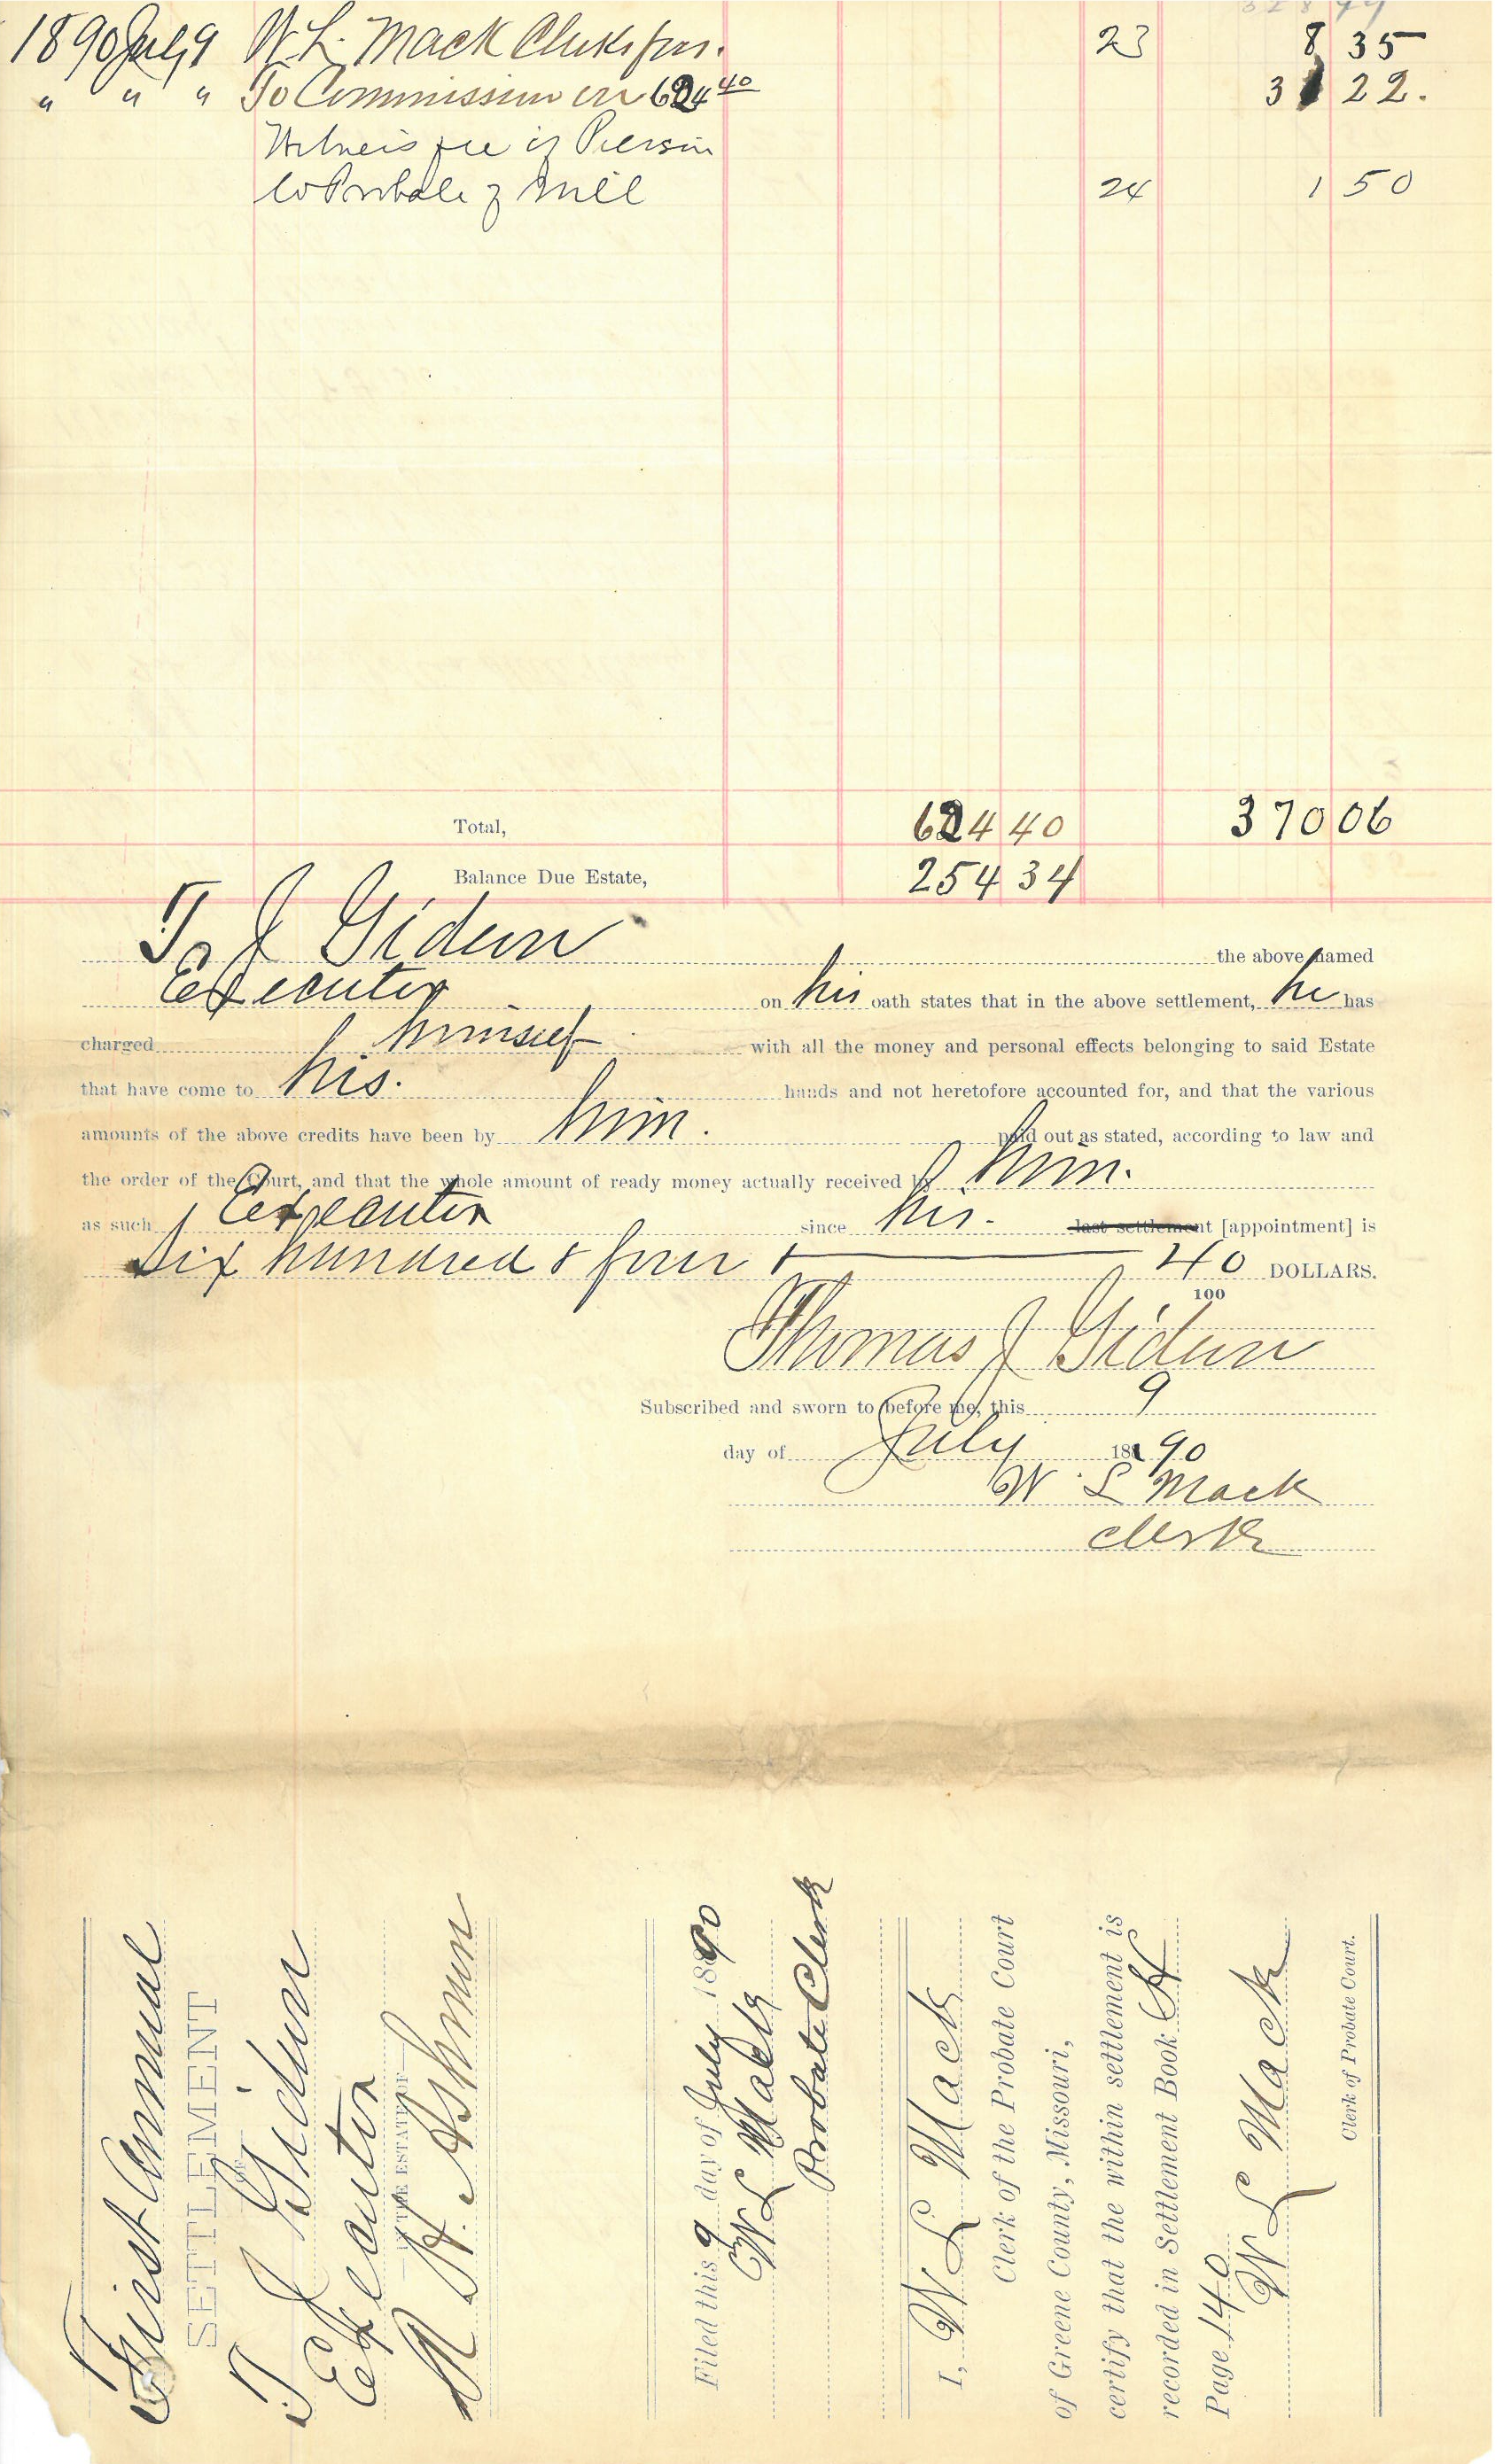 1890 July 9 W. L. Mack Clerks fees. 23 8 35
" " " To Commission on 624 40 31 22.
Witness fee of Pierson
to Probate of Will 24 1 50
Total, 624 40 370 06
Balance Due Estate, 254 34
T. J Gideon the above named
Executor on his oath states that in the above settlement, he has
charged himself with all the money and personal effects belonging to said Estate
that have come to his. hands and not heretofore accounted for, and that the various
amounts of the above credits have been by him. paid out as stated, according to law and
the order of the Court, and that the whole amount of ready money actually received by him.
as such Executor since his. last settlement [appointment] is
Six hundred & four & 40/100 DOLLARS.
Thomas J Gideon
Subscribed and sworn to before me, this 9
day of July 1890
W. L Mack
Clerk
First Annual
SETTLEMENT
OF
T J Gideon
Executor
OF THE ESTATE OF
H. Ashmun
Filed this 9 day of July 1890
W L Mack
Probate Clerk
I, W L Mack
Clerk of the Probate Court
of Greene County, Missouri,
certify that the within settlement is
recorded in Settlement Book H
Page 140
W L Mack
Clerk of Probate Court.